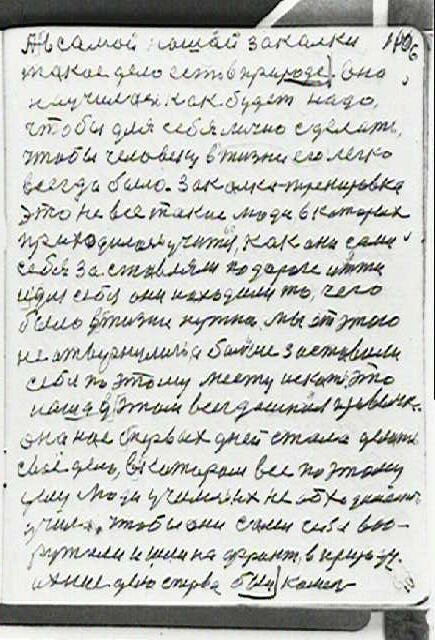 А в самой нашай закалки 1406
такое дело есть в природе. Оно
научилася как будет надо,
чтобы для себя лично сделать,
чтобы человеку в жизни его легко
всегда было. Закалка-тренировка
это не все такие люди в которых
приходилося учится, как они сами
себя заставляли по дороге итти
и для себя они находили то, чего
было в жизни нужна. Мы от этого
не отвернулися а больше заставили
себя по этому месту искать. Это
наша в этом всегдашняя
она нас с первых дней стала делать
своё дело, в котором все по этому
делу люди учили их не
учила, чтобы они сами себя воо-
ружали и шли на фронт, в природу.
их было